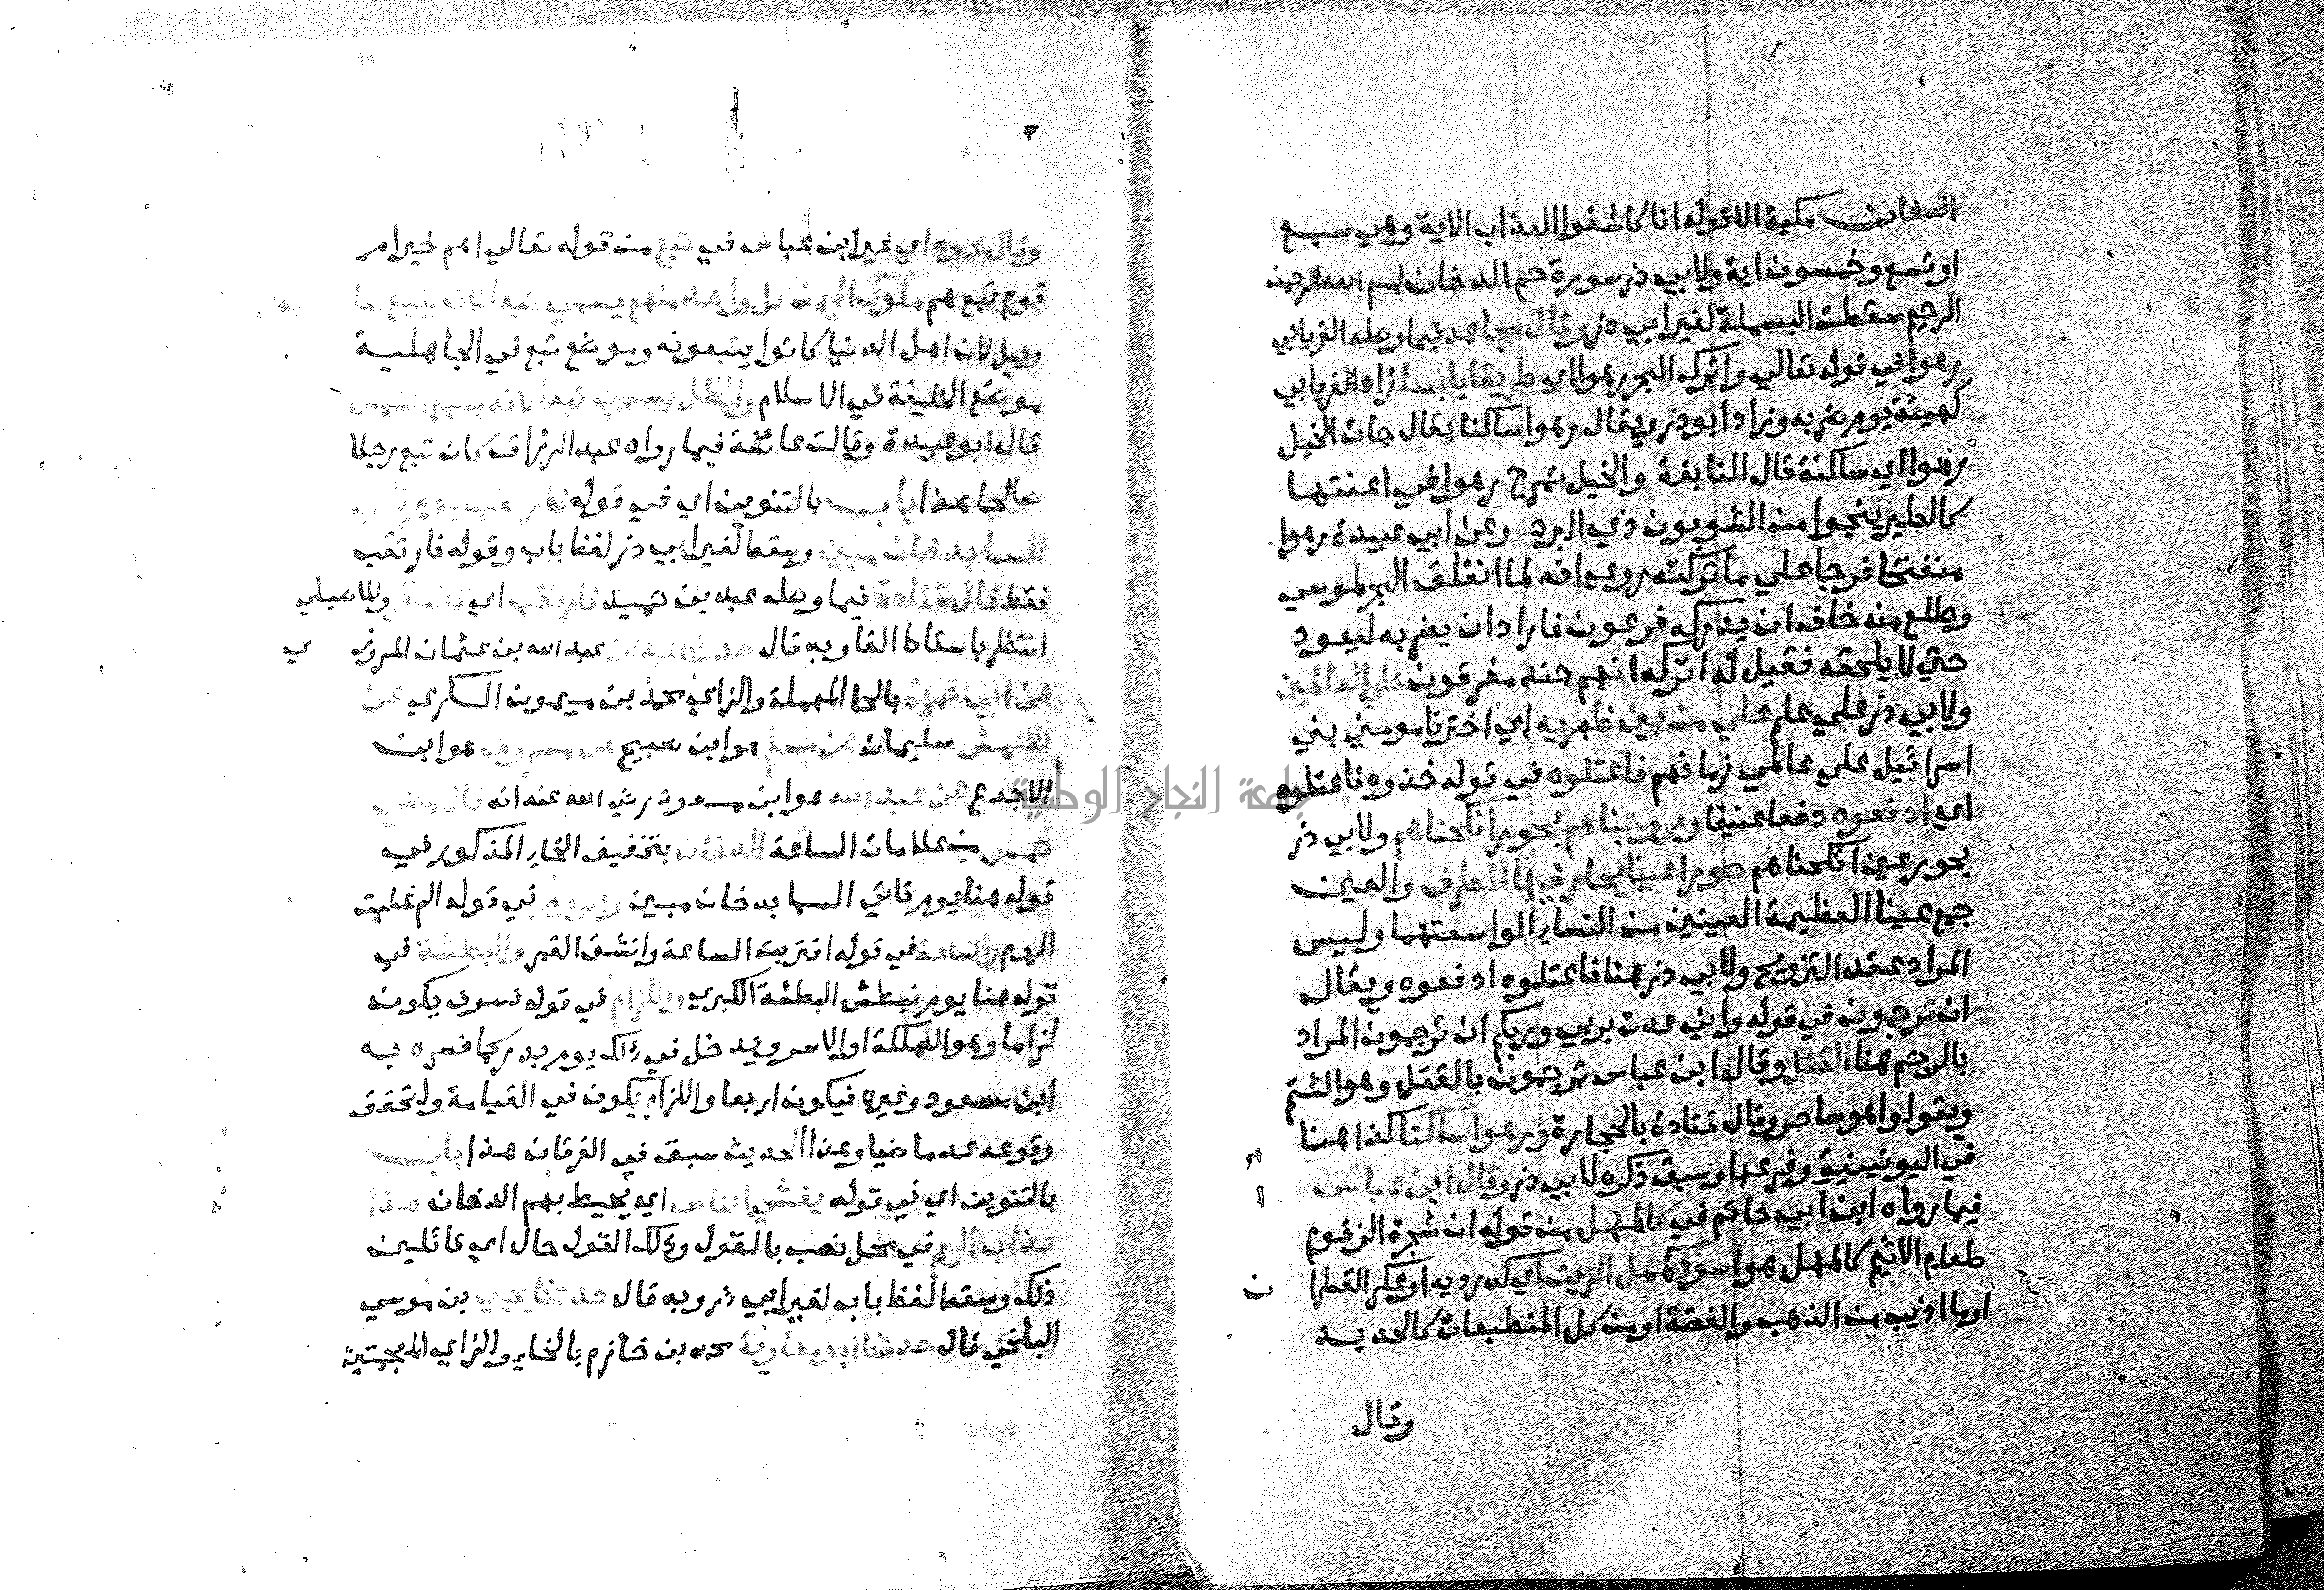 الدخان مكية الا قوله انا كاشفوا العذاب الاية وهي سبع
او تسع وخمسون اية ولابي ذر سورة حم الدخان بسم الله الرحمن
الرحيم سقطت البسملة لغير ابي ذر وقال مجاهد فيما وصله الفريابي
رهوا في قوله تعالي واترك البحر رهوا اي طريقا يابسا زاد الفريابي
كهيئة يوم ضربه وزاد ابو ذر ويقال رهوا ساكنا يقال جات الخيل
رهوا اي ساكنة قال النابغة والخيل تمرح رهوا في اعنتها
كالطير ينجوا من الشوبوب ذي البرد وعن ابي عبيدة رهوا
منفتحا فرجا علي ما تركته روي انه لما انفلق البحر لموسي
وطلع منه خاف ان يدركه فرعون فاراد ان يضربه ليعود
حتي لا يلحقه فقيل له اتركه انهم جند مغرقون علي العالمين
ولابي ذر علي علم علي من بين ظهريه اي اخترنا مومني بني
اسرائيل علي عالمي زمانهم فاعتلوه في قوله خذوه فاعتلوه
اي ادفعوه دفعا عنيفا وزوجناهم بحور انكحناهم ولابي ذر
بحور عين انكحناهم حورا عينا يحار فيها الطرف والعين
جمع عينا العظيمة العينين من النساء الواسعتهما وليس
المراد عقد التزويج ولابي ذر هنا فاعتلوه ادفعوه ويقال
ان ترجمون في قوله واني عدت بربي وربكم ان ترجمون المراد
بالرجم هنا القتل وقال ابن عباس ترجمون بالقتل وهو الشتم
ويقولوا هو ساحر وقال قتادة بالحجارة ورهوا ساكنا كذا هنا
في اليونينية وفرعها وسبق ذكره لابي ذر وقال ابن عباس
فيما رواه ابن ابي حاتم في كالمهل من قوله ان شجرة الزقوم
طعام الاثيم كالمهل هو اسود كمهل الزيت اي كدرديه او عكر القطران
او ما اذيب من الذهب والفضة او من كل المنطبعات كالحديد
وقال
وقال غيره اي غير ابن عباس في تبع من قوله تعالي اهم خير ام
قوم تبع هم ملوك اليمن كل واحد منهم يسمي تبعا لانه يتبع صاحبه
وقيل لان اهل الدنيا كانوا يتبعونه وموضع تبع في الجاهلية
موضع الخليفة في الاسلام والظل يسمي تبعا لانه يتبع الشمس
قاله ابو عبيدة وقالت عائشة فيما رواه عبد الرزاق كان تبع رجلا
صالحا هذا باب بالتنوين اي في قوله فارتقب يوم تاتي
السما بدخان مبين وسقط لغير ابي ذر لفظ باب وقوله فارتقب
فقط قال قتادة فيما وصله عبد بن حميد فارتقب اي فانتظر وللاصيلي
انتظر باسقاط الفا وبه قال حدثنا عبدان عبد الله بن عثمان المروزي
عن ابي حمزة بالحا المهملة والزاي محمد بن ميمون السكري عن
الاعمش سليمان عن مسلم هو ابن صبيح عن مسروق هو ابن
الاجدع عن عبد الله هو ابن مسعود رضي الله عنه انه قال مضي
خمس من علامات الساعة الدخان بتخفيف الخاء المذكور في
قوله هنا يوم تاتي السما بدخان مبين والروم في قوله الم غلبت
الروم والساعة في قوله اقتربت الساعة وانشق القمر والبطشة في
قوله هنا يوم نبطش البطشة الكبري واللزام في قوله فسوف يكون
لزاما وهو الهلكة او الاسر ويدخل في ذلك يوم بدر كما فسره به
ابن مسعود وغيره فيكون اربعا واللزام يكون في القيامة ولتحقق
وقوعه عد ماضيا وهذا الحديث سبق في الفرقان هذا باب
بالتنوين اي في قوله يغشي الناس اي يحيط بهم الدخان هذا
عذاب اليم في محل نصب بالقول وذلك القول حال اي قائلين
ذلك وسقط لفظ باب لغير ابي ذر وبه قال حدثنا يحيي بن موسي
البلخي قال حدثنا ابو معاوية محمد بن خازم بالخاء والزاي المعجمتين
جامعة النجاح الوطنية